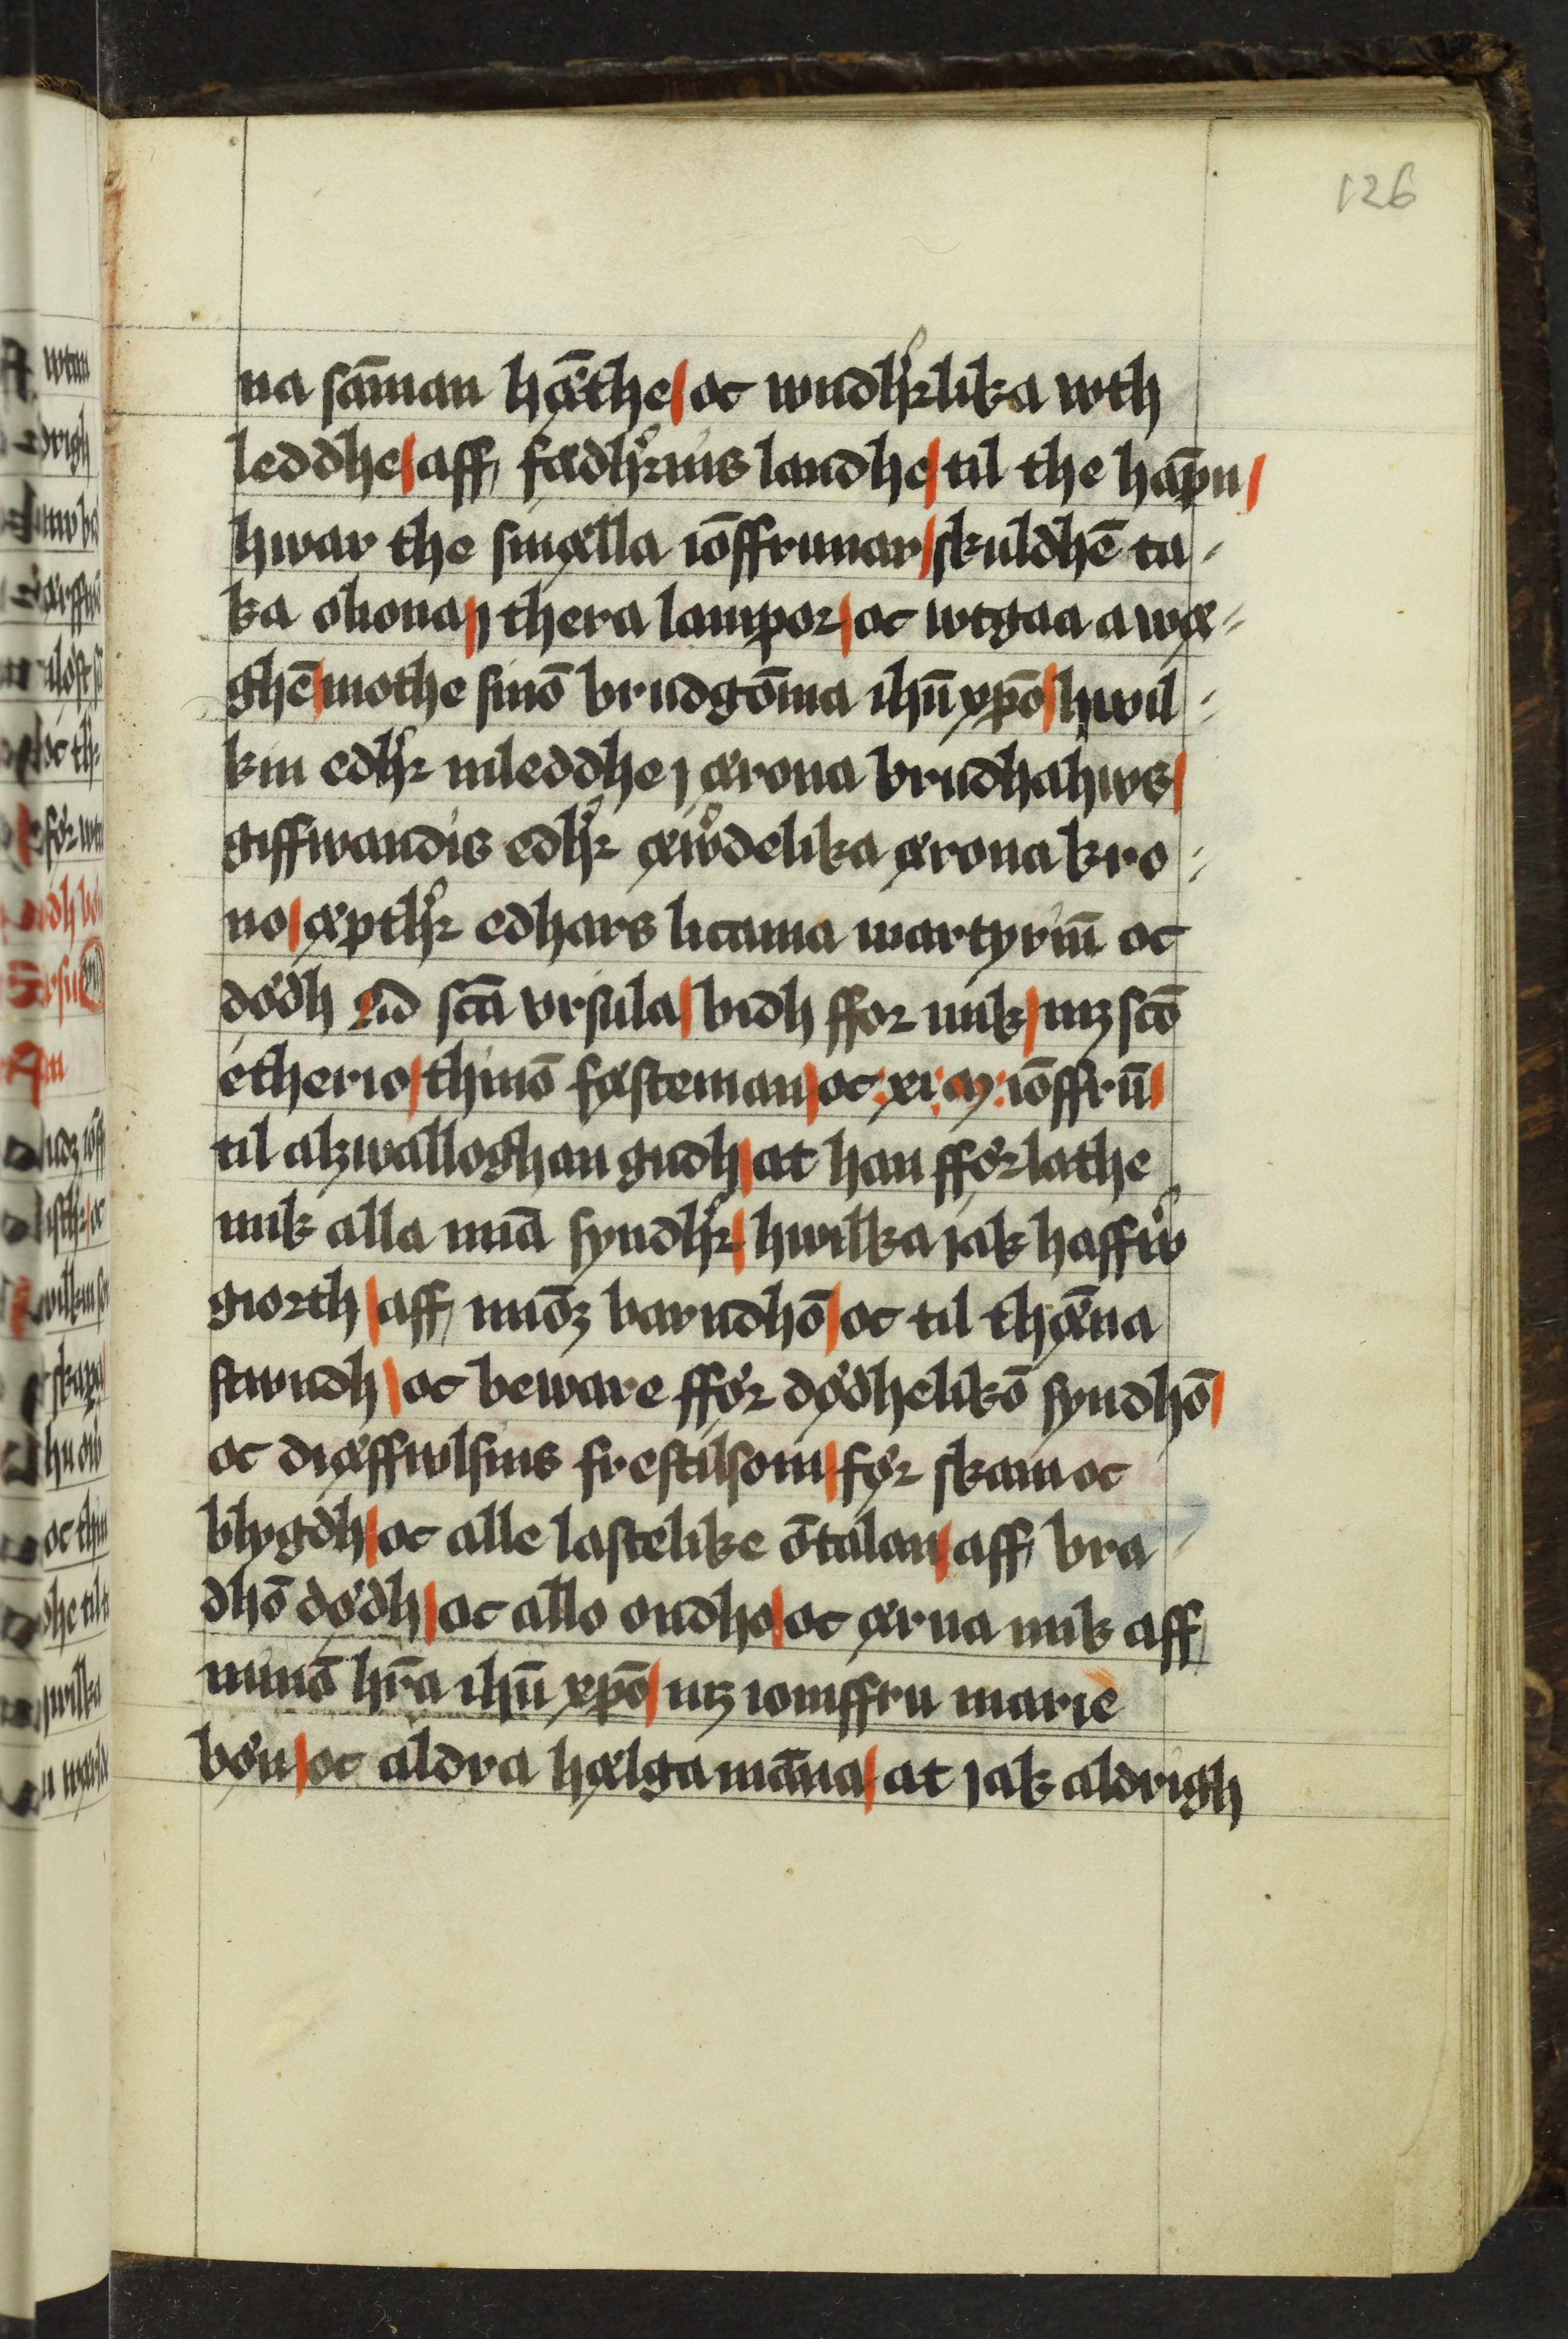 126
na sa̅man hæ̅the / oc wndh̓rlika wth
leddhe / aff fædh̓rnis landhe / til the hap̅n /
hwar the snælla io̅ffrunar / skuldhe̅ ta-
ka oliona j thera lampor / oc wtgaa a wæ-
ghe̅ / mothe sino̅ brudgo̅ma ihu̅ xpo̅ / hwil-
kin edh̓r inleddhe j ærona brudhahws /
giffwandis edh̓r æw̓delika ærona kro-
no / æpth̓r edhars licama martyriu̅ oc
dødh Nid sc̅a vrsula / bidh ffor mik / mz sc̅o
etherio / thino̅ fæsteman / oc xi: M: io̅ffru̅ /
til alzwalloghan gudh / at han fførlathe
mik alla mi̅a syndh̓r / hwilka jak haffw̓
giorth / aff mi̅o̅z barndho̅ / oc til thæ̅na
stwndh / oc beware ffør dødheliko̅ syndho̅ /
oc diæffwlsins frestilsom / før skam oc
blygdh / oc alle lastelike o̅talan / aff bra-
dho̅ dødh / oc allo ondho / oc ærna mik aff
mino̅ hr̅a ihu̅ xpo̅ / mz iomffru marie
bøn / oc aldra hælga ma̅na / at jak aldrigh